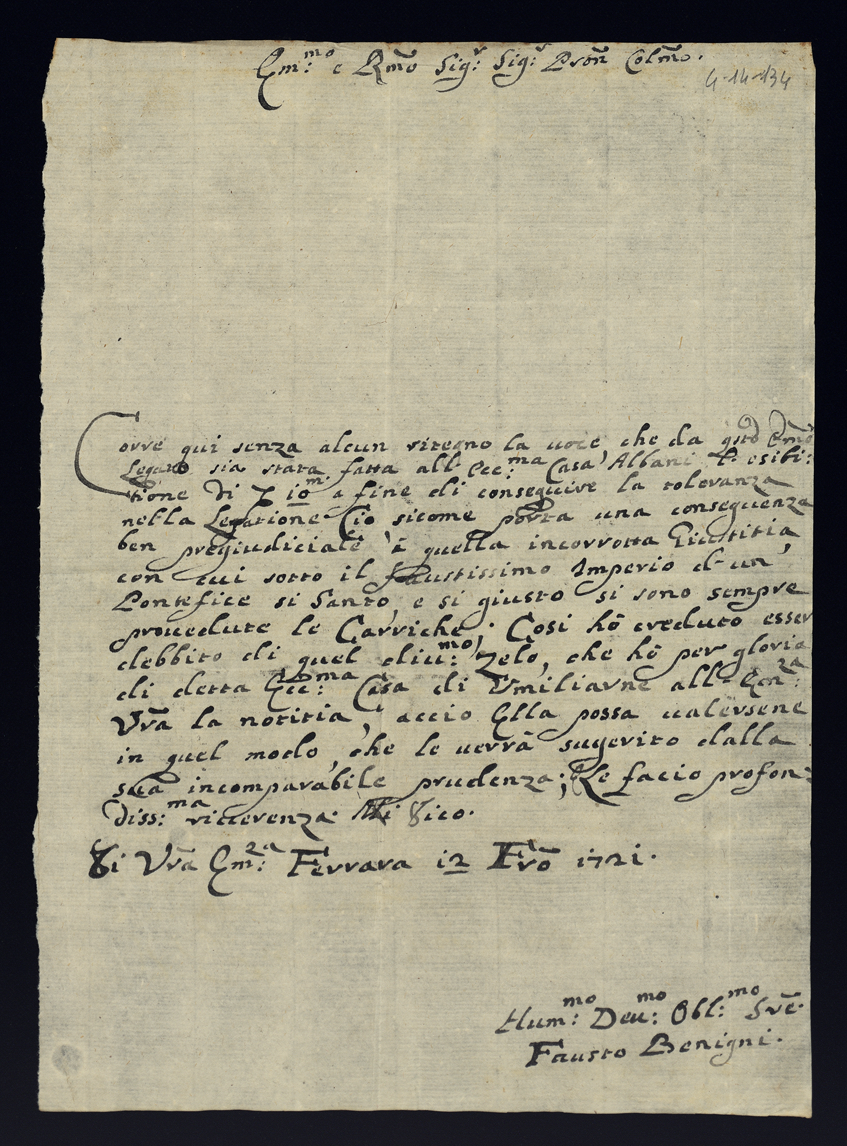 Em:mo e Rmõ Sigr: Sigr: Pron Colmõ.
4-14-134
Corre qui senza alcun ritegno la uoce che da qsto Emõ
Legato sia stata fatta all' Ecc:ma Casa Albani l' esibi:
tione di 10m a fine di conseguire la toleranza
nella Legatione. Ciò sicome porta una conseguenza
ben pregiudiciale à quella incorrotta Giustitia
con cui sotto il faustissimo Imperio d' un
Pontefice si Santo, e si giusto si sono sempre
procedute le Carriche. Cosi hò creduto esser
debbito di quel diu:mo Zelo, che hò per gloria
di detta Ecc:ma Casa di Vmiliarne all' Em:za
Vrã la notitia, accio Ella possa ualersene
in quel modo, che le uerrà sugerito dalla
sua incomparabile prudenza; Le facio profon:
diss:ma riuerenza. Mi dico.
Di Vrã Em:za Ferrara 12 Frõ 1721.
Hum:mo Deu:mo Obl:mo Srẽ.
Fausto Benigni.